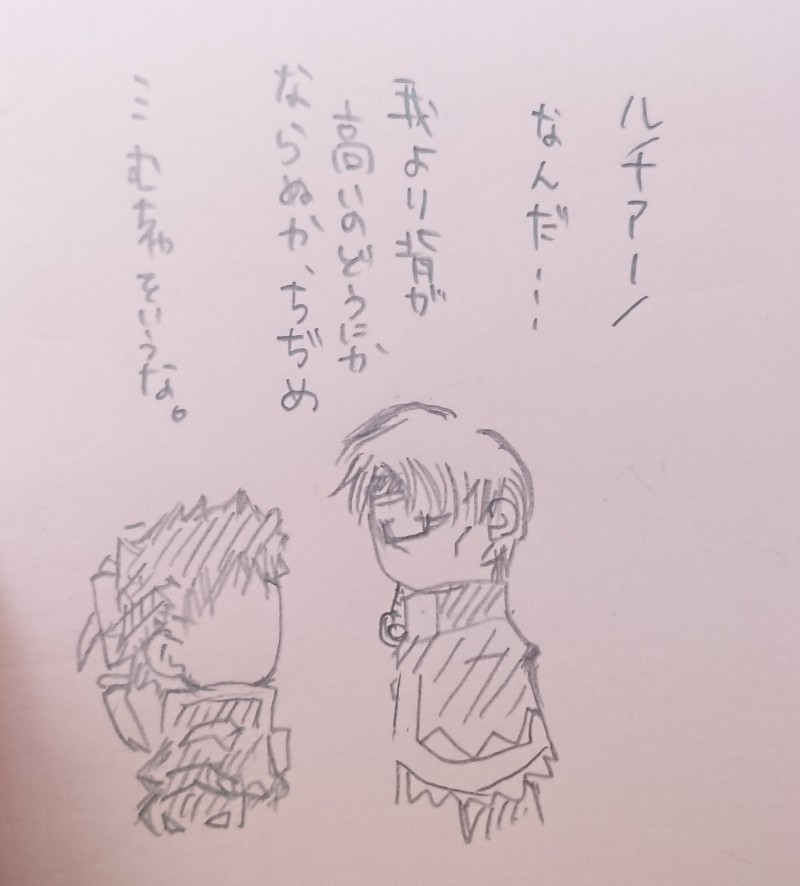 ルチアーノ
なんだ…
我より背が
高いのどうにか
ならぬか、ちぢめ
… むちゃをいうな。